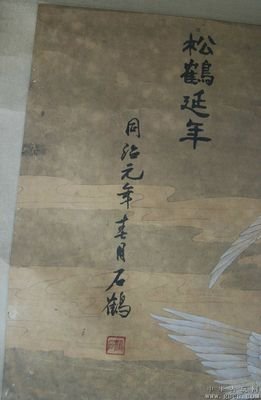 松鶴延年
同治元年春月石鶴